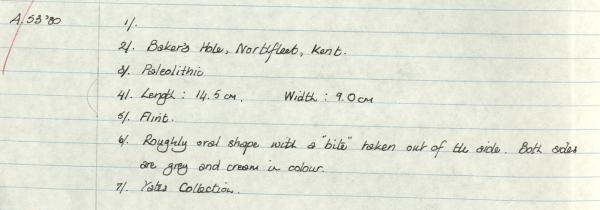 A.53'80
1/.
2/. Baker's Hole, Northfleet, Kent.
3/. Paleolithic
4/. Length : 14.5 cm. Width : 9.0cm
5/. Flint.
6/. Roughly oval shape with a "bite" taken out of the side. Both sides
are grey and cream in colour.
7/. Yates Collection.